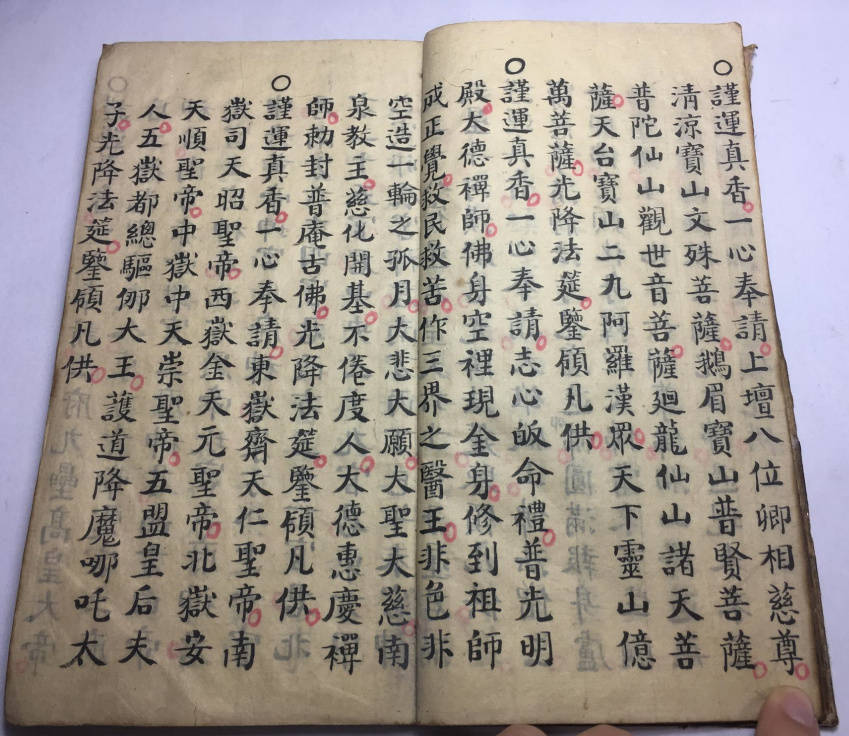 ○謹運真香一心奉請上壇八位卿相慈尊
清涼寶山文殊菩薩鵝眉寶山普賢菩薩
普陀仙山觀世音菩薩廻龍仙山諸天菩
薩天台寶山二九阿羅漢眾天下靈山億
萬菩薩光降法筵鑒領凡供
○謹運真香一心奉請志心皈命禮普光明
殿大德禪師佛身空裡現金身修到祖師
成正覺救民救苦作三界之醫王非色非
空造一輪之孤月大悲大願大聖大慈南
泉教主慈化開基不倦度人大德惠慶禪
師勅封普庵古佛光降法筵鑒領凡供
○謹運真香一心奉請東嶽齊天仁聖帝南
嶽司天昭聖帝西嶽金天元聖帝北嶽安
天順聖帝中獄中天崇聖帝五盟皇后夫
人五嶽都總驅邪大王護道降魔哪吒太
子光降法筵鑒領凡供
○